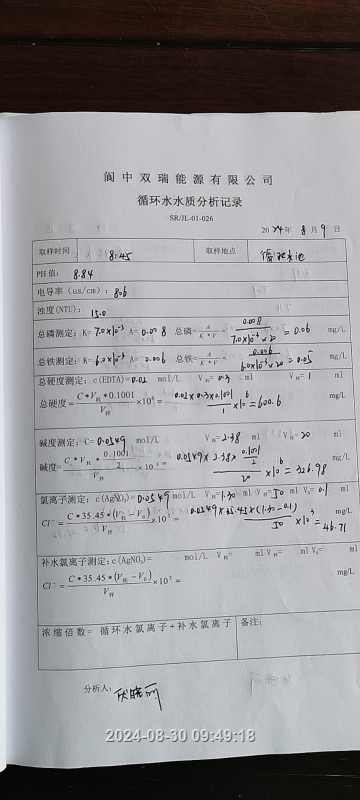 阆中双瑞能源有限公司
循环水水质分析记录
SR/JL-01-026
2024年 8月 9日
取样时间 8:45 取样地点 循环水池
PH值: 8.84
电导率(us/cm): 806
浊度(NTU): 15.0
总磷测定: K= 7.0×10⁻³ A= 0.008 总磷= A/(K*V) = 0.008/(7.0×10⁻³×20) = 0.06 mg/L
总铁测定: K= 6.0×10⁻³ A= 0.006 总铁= A/(K*V) = 0.006/(6.0×10⁻³×20) = 0.05 mg/L
总硬度测定: c(EDTA)= 0.02 mol/L V耗= 0.3 ml V样= 1 ml
总硬度= C*V耗*0.1001/V样 ×10⁶ = 0.02×0.3×0.1001/1 ×10⁶ = 600.6 mg/L
碱度测定: C= 0.0549 mol/L V耗= 2.38 ml V样= 20 ml
碱度= C*V耗*(0.1001/2)/V样 ×10⁶ = 0.0549×2.38×(0.1001/2)/20 ×10⁶ = 326.98 mg/L
氯离子测定: c(AgNO₃)= 0.0549 mol/L V耗= 1.30 ml V样= 50 ml V₀= 0.1 ml
Cl⁻= C*35.45*(V耗−V₀)/V样 ×10³ = 0.0549×35.45×(1.30-0.1)/50 ×10³ = 46.71 mg/L
补水氯离子测定: c(AgNO₃)= mol/L V耗= ml V样= ml V₀= ml
Cl⁻= C*35.45*(V耗−V₀)/V样 ×10³ = mg/L
浓缩倍数= 循环水氯离子÷补水氯离子 备注:
分析人:
2024-08-30 09:49:18